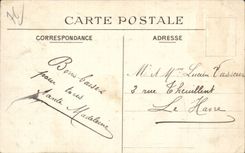 CARTE POSTALE
CORRESPONDANCE
ADRESSE
Bons baisers
pour tous
Tante Madeleine
M. & Mme Lucien Vasseur
3 rue Thieullent
Le Havre